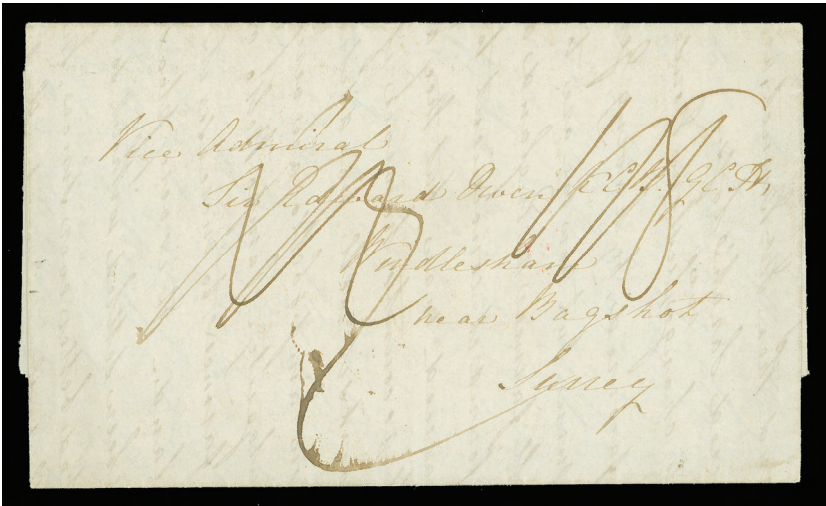 Vice Admiral
Sir Edward Owen K.C.B. G.C.H.
Windlesham
near Bagshot
Surrey